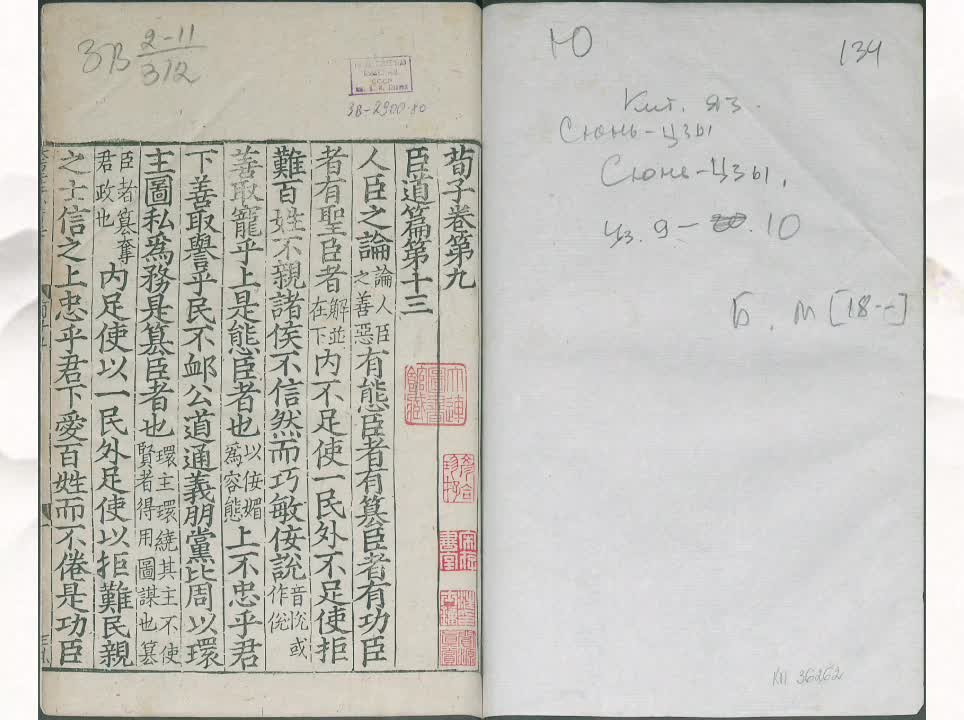 荀子卷第九
臣道篇第十三
人臣之論論人臣之善惡有態臣者有篡臣者有功臣
者有聖臣者解並在下内不足使一民外不足使拒
難百姓不親諸侯不信然而巧敏佞說音悅或作侻
善取寵乎上是態臣者也以佞媚為容態上不忠乎君
下善取譽乎民不卹公道通義朋黨比周以環
主圖私爲務是篡臣者也環主環繞其主不使賢者得用圖謀也篡
臣者篡奪君政也内足使以一民外足使以拒難民親
之士信之上忠乎君下愛百姓而不倦是功臣
3B 2-11
312
3B-2900.80
大連圖書館藏
Ю
134
Кит. яз.
Сюнь-цзы
Сюнь-Цзы,
Цз. 9- 10
Б. м [18--]
КП 36262